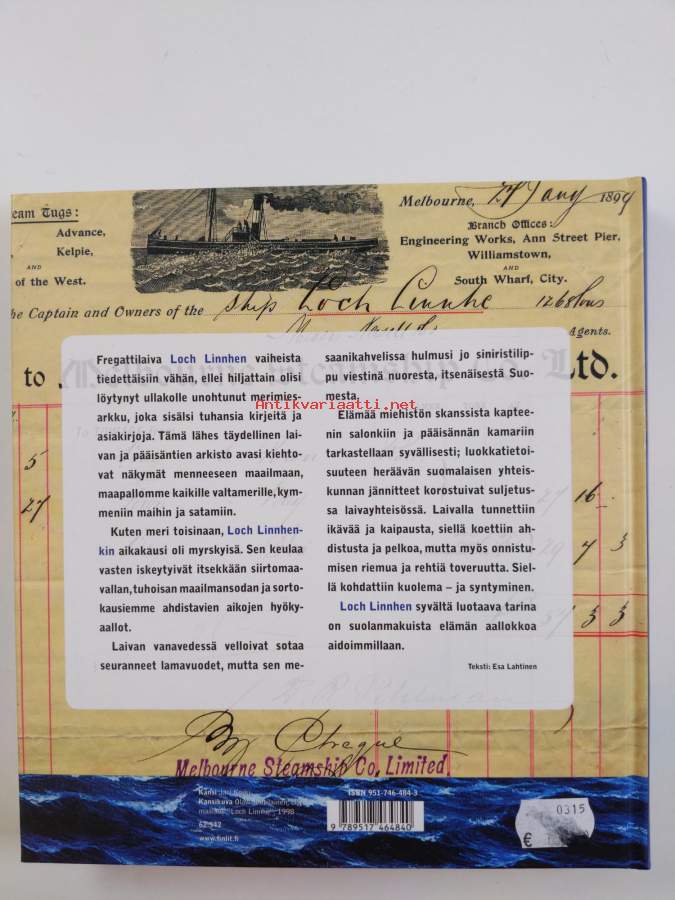 eam Tugs:
Advance,
Kelpie,
AND
of the West.
Melbourne, 27 Jany 1899
Branch Offices:
Engineering Works, Ann Street Pier,
Williamstown,
AND
South Wharf, City.
he Captain and Owners of the ship Loch Linnhe 1268 tons
Agents.
to Melbourne Steamship Co. Ltd.
Fregattilaiva Loch Linnhen vaiheista
tiedettäisiin vähän, ellei hiljattain olisi
löytynyt ullakolle unohtunut merimies-
arkku, joka sisälsi tuhansia kirjeitä ja
asiakirjoja. Tämä lähes täydellinen lai-
van ja pääisäntien arkisto avasi kiehto-
vat näkymät menneeseen maailmaan,
maapallomme kaikille valtamerille, kym-
meniin maihin ja satamiin.
Kuten meri toisinaan, Loch Linnhen-
kin aikakausi oli myrskyisä. Sen keulaa
vasten iskeytyivät itsekkään siirtomaa-
vallan, tuhoisan maailmansodan ja sorto-
kausiemme ahdistavien aikojen hyöky-
aallot.
Laivan vanavedessä velloivat sotaa
seuranneet lamavuodet, mutta sen me-
saanikahvelissa hulmusi jo siniristilip-
pu viestinä nuoresta, itsenäisestä Suo-
mesta.
Elämää miehistön skanssista kaptee-
nin salonkiin ja pääisännän kamariin
tarkastellaan syvällisesti; luokkatietoi-
suuteen heräävän suomalaisen yhteis-
kunnan jännitteet korostuivat suljetus-
sa laivayhteisössä. Laivalla tunnettiin
ikävää ja kaipausta, siellä koettiin ah-
distusta ja pelkoa, mutta myös onnistu-
misen riemua ja rehtiä toveruutta. Siel-
lä kohdattiin kuolema – ja syntyminen.
Loch Linnhen syvältä luotaava tarina
on suolanmakuista elämän aallokkoa
aidoimmillaan.
Teksti: Esa Lahtinen
Antikvariaatti.net
5
27
16
4 3
3 3
By Cheque
Melbourne Steamship Co. Limited.
Kansi
Kansikuva
"Loch Linnhe", 1998
62.542
www.finlit.fi
ISBN 951-746-484-3
9 789517 464840
0315
€